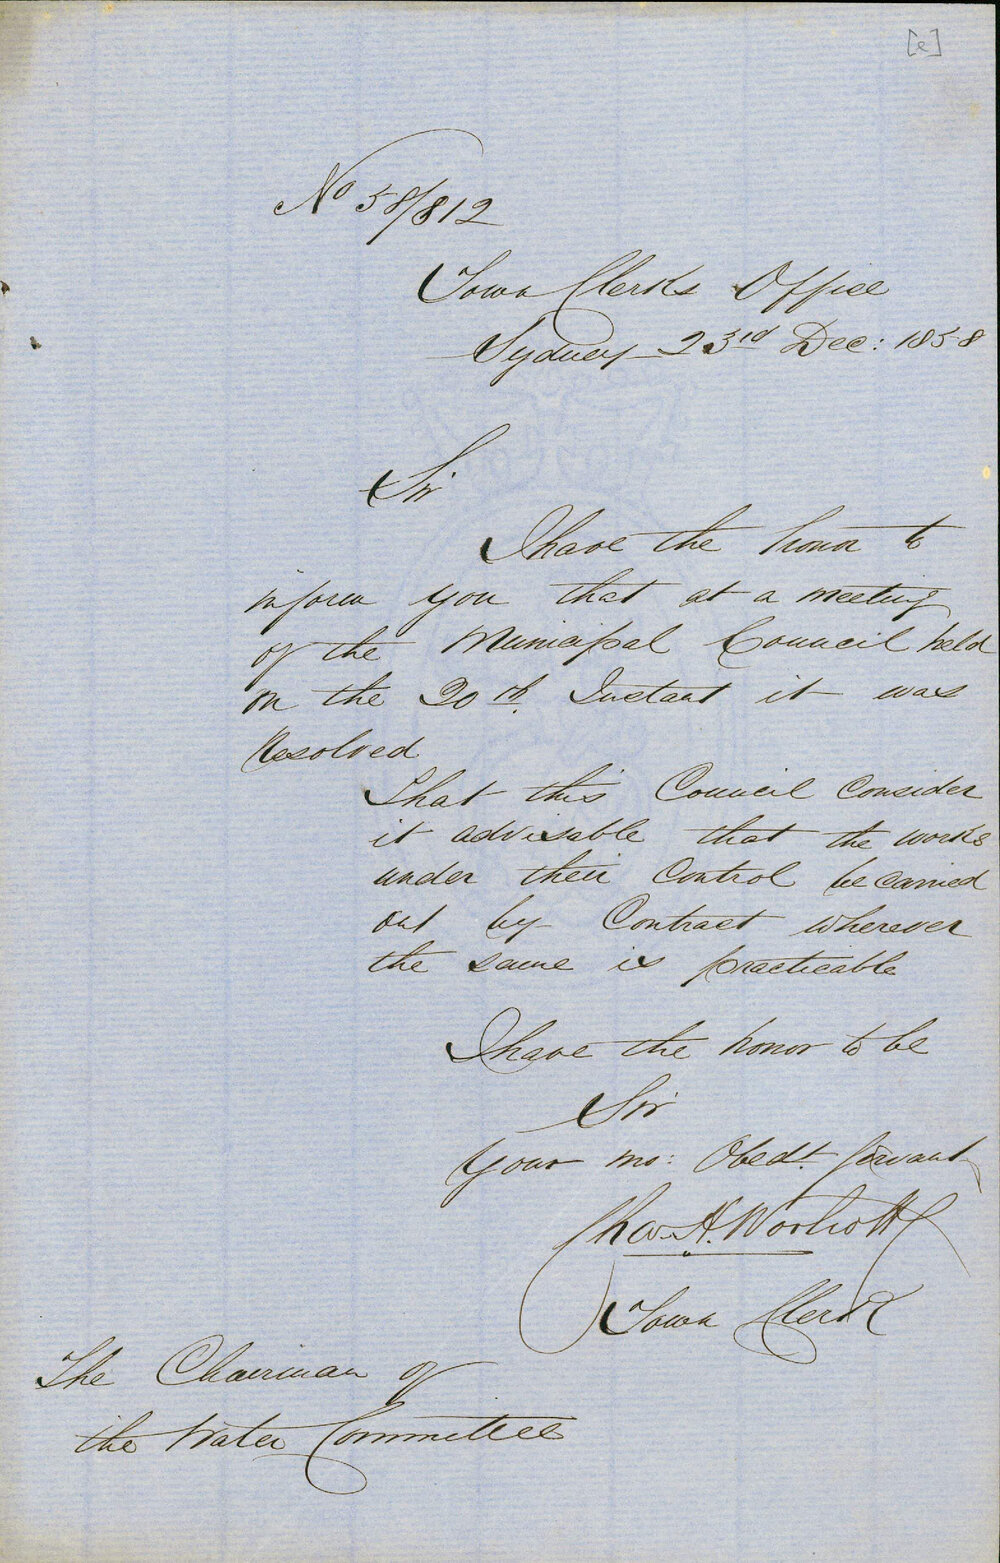 [e]
No 58/812
Town Clerks Office
Sydney 23rd Dec: 1858
Sir
I have the honor to
inform you that at a meeting
of the Municipal Council held
on the 20th. Instant it was
Resolved
That this Council Consider
it advisable that the works
under their Control be carried
out by Contract wherever
the same is practicable
I have the honor to be
Sir
Your mo: Obedt. Servant
Chas. H. Woolcott
Town Clerk
The Chairman of
the Water Committee